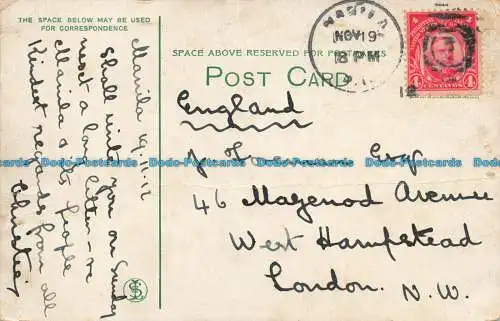 THE SPACE BELOW MAY BE USED
FOR CORRESPONDENCE
SPACE ABOVE RESERVED FOR POSTMARKS
POST CARD
MANILA
NOV 19
8 PM
P.I.
12
4 CENTAVOS 4
Manila 19.11.12
Shall write you on Sunday
next a long letter - re
Manila & its people
Kindest regards from all
England
J Esq
46 Mazenod Avenue
West Hampstead
London. N.W.
Dodo-Postcards Dodo-Postcards Dodo-Postcards Dodo-Postcards